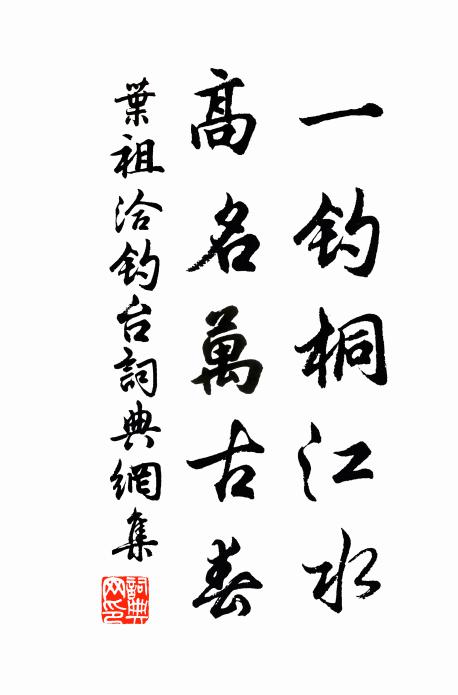 一钓桐江水
高名萬古春
葉祖洽钓台詞典網集
詞典網印